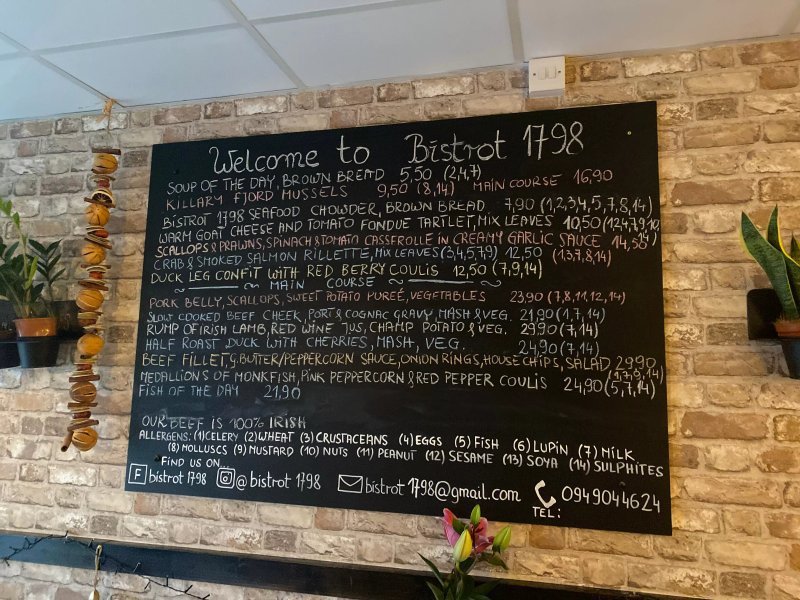 Welcome to Bistrot 1798
SOUP OF THE DAY, BROWN BREAD 5,50 (2,4,7)
KILLARY FJORD MUSSELS 9,50 (8,14) MAIN COURSE 16,90
BISTROT 1798 SEAFOOD CHOWDER, BROWN BREAD 7,90 (1,2,3,4,5,7,8,14)
WARM GOAT CHEESE AND TOMATO FONDUE TARTLET, MIX LEAVES 10,50
SCALLOPS & PRAWNS, SPINACH & TOMATO CASSEROLLE IN CREAMY GARLIC SAUCE 14,50
CRAB & SMOKED SALMON RILLETTE, MIX LEAVES (3,4,5,7,9) 12,50 (1,3,7,8,14)
DUCK LEG CONFIT WITH RED BERRY COULIS 12,50 (7,9,14)
MAIN COURSE
PORK BELLY, SCALLOPS, SWEET POTATO PUREÉ, VEGETABLES 23,90 (7,8,11,12,14)
SLOW COOKED BEEF CHEEK, PORT & COGNAC GRAVY, MASH & VEG. 21,90 (1,7,14)
RUMP OF IRISH LAMB, RED WINE JUS, CHAMP POTATO & VEG. 29,90 (7,14)
HALF ROAST DUCK WITH CHERRIES, MASH, VEG. 24,90 (7,14)
BEEF FILLET, G. BUTTER/PEPPERCORN SAUCE, ONION RINGS, HOUSE CHIPS, SALAD 29,90
(1,7,9,14)
MEDALLIONS OF MONKFISH, PINK PEPPERCORN & RED PEPPER COULIS 24,90 (5,7,14)
FISH OF THE DAY 21,90
OUR BEEF IS 100% IRISH
ALLERGENS: (1) CELERY (2) WHEAT (3) CRUSTACEANS (4) EGGS (5) FISH (6) LUPIN (7) MILK
(8) MOLLUSCS (9) MUSTARD (10) NUTS (11) PEANUT (12) SESAME (13) SOYA (14) SULPHITES
FIND US ON
F bistrot 1798 @ bistrot 1798 bistrot 1798@gmail.com TEL: 0949044624